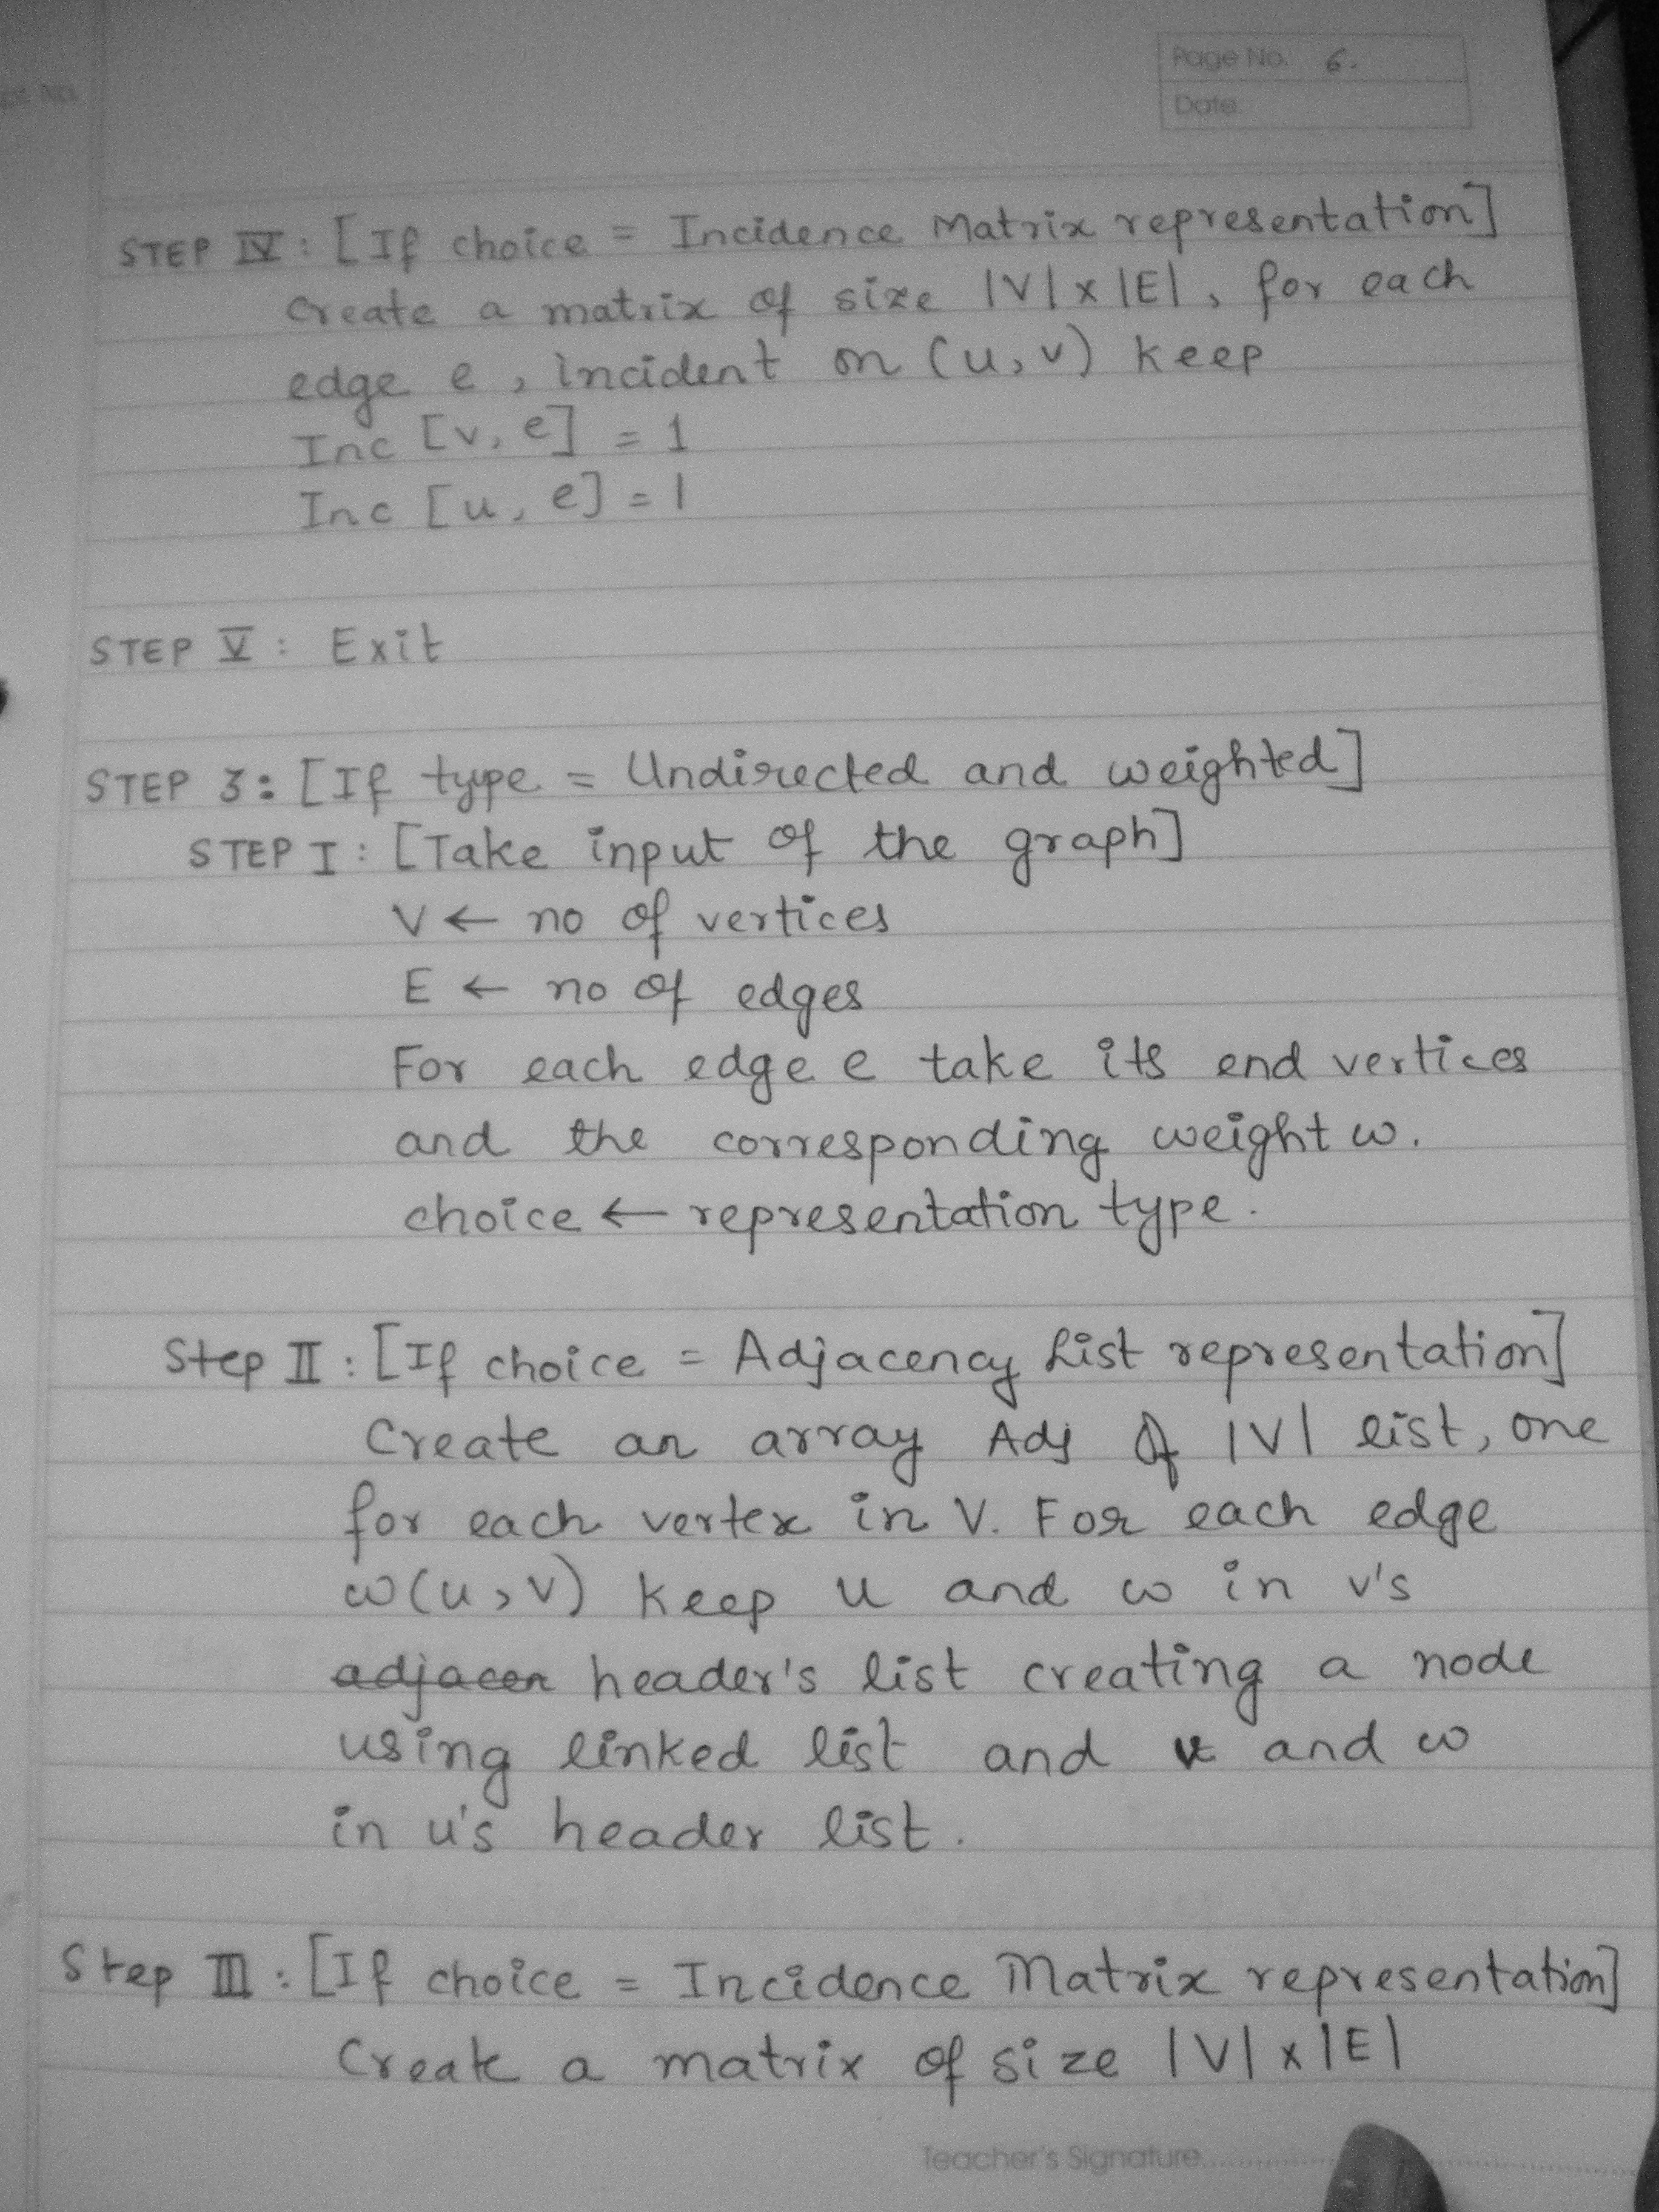 Page No. 6.
Date
STEP IV : [If choice = Incidence Matrix representation]
Create a matrix of size |V| x |E| , for each
edge e , incident on (u, v) keep
Inc [v, e] = 1
Inc [u, e] = 1
STEP V : Exit
STEP 3: [If type = Undirected and weighted]
STEP I : [Take input of the graph]
V ← no of vertices
E ← no of edges
For each edge e take its end vertices
and the corresponding weight w.
choice ← representation type.
Step II : [If choice = Adjacency List representation]
Create an array Adj of |V| list, one
for each vertex in V. For each edge
w(u, v) keep u and w in v's
adjacen header's list creating a node
using linked list and v and w
in u's header list.
Step III : [If choice = Incidence Matrix representation]
Create a matrix of size |V| x |E|
Teacher's Signature